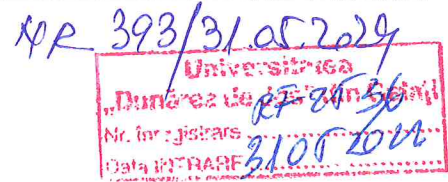 NR 393/31.05.2024
Universitatea
„Dunărea de Jos” din Galați
Nr. înregistrare
Data INTRARE 31 05